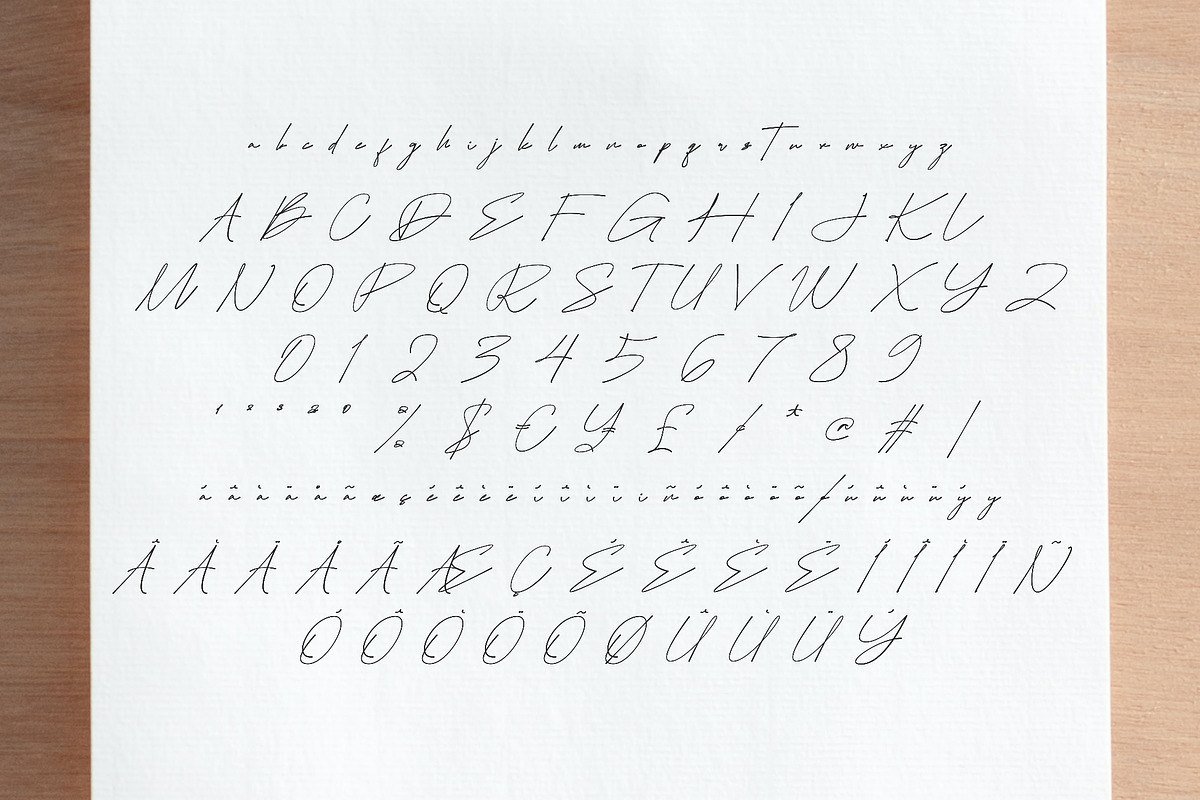 a b c d e f g h i j k l m n o p q r s t u v w x y z
A B C D E F G H I J K L
M N O P Q R S T U V W X Y Z
0 1 2 3 4 5 6 7 8 9
% $ € ¥ £ * @ # |
á â à ä å ã æ ç é ê è ë í î ì ï i ñ ó ô ò ö õ ø ú û ù ü ý y
Â À Ä Å Ã Æ Ç É Ê È Ë Í Î Ì Ï Ñ
Ó Ô Ò Ö Õ Ø Û Ù Ü Ý